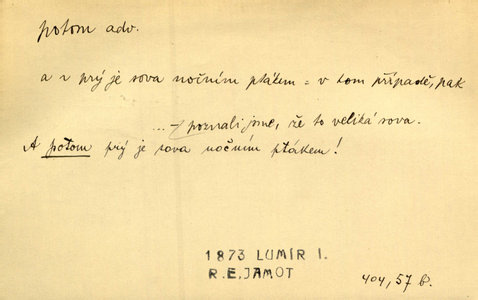 potom adv.
a r prý je sova nočním ptákem = v tom případě, pak
... poznali jsme, že to veliká sova.
A potom prý je sova nočním ptákem!
1873 LUMÍR I.
R.E. JAMOT
404, 57 b.